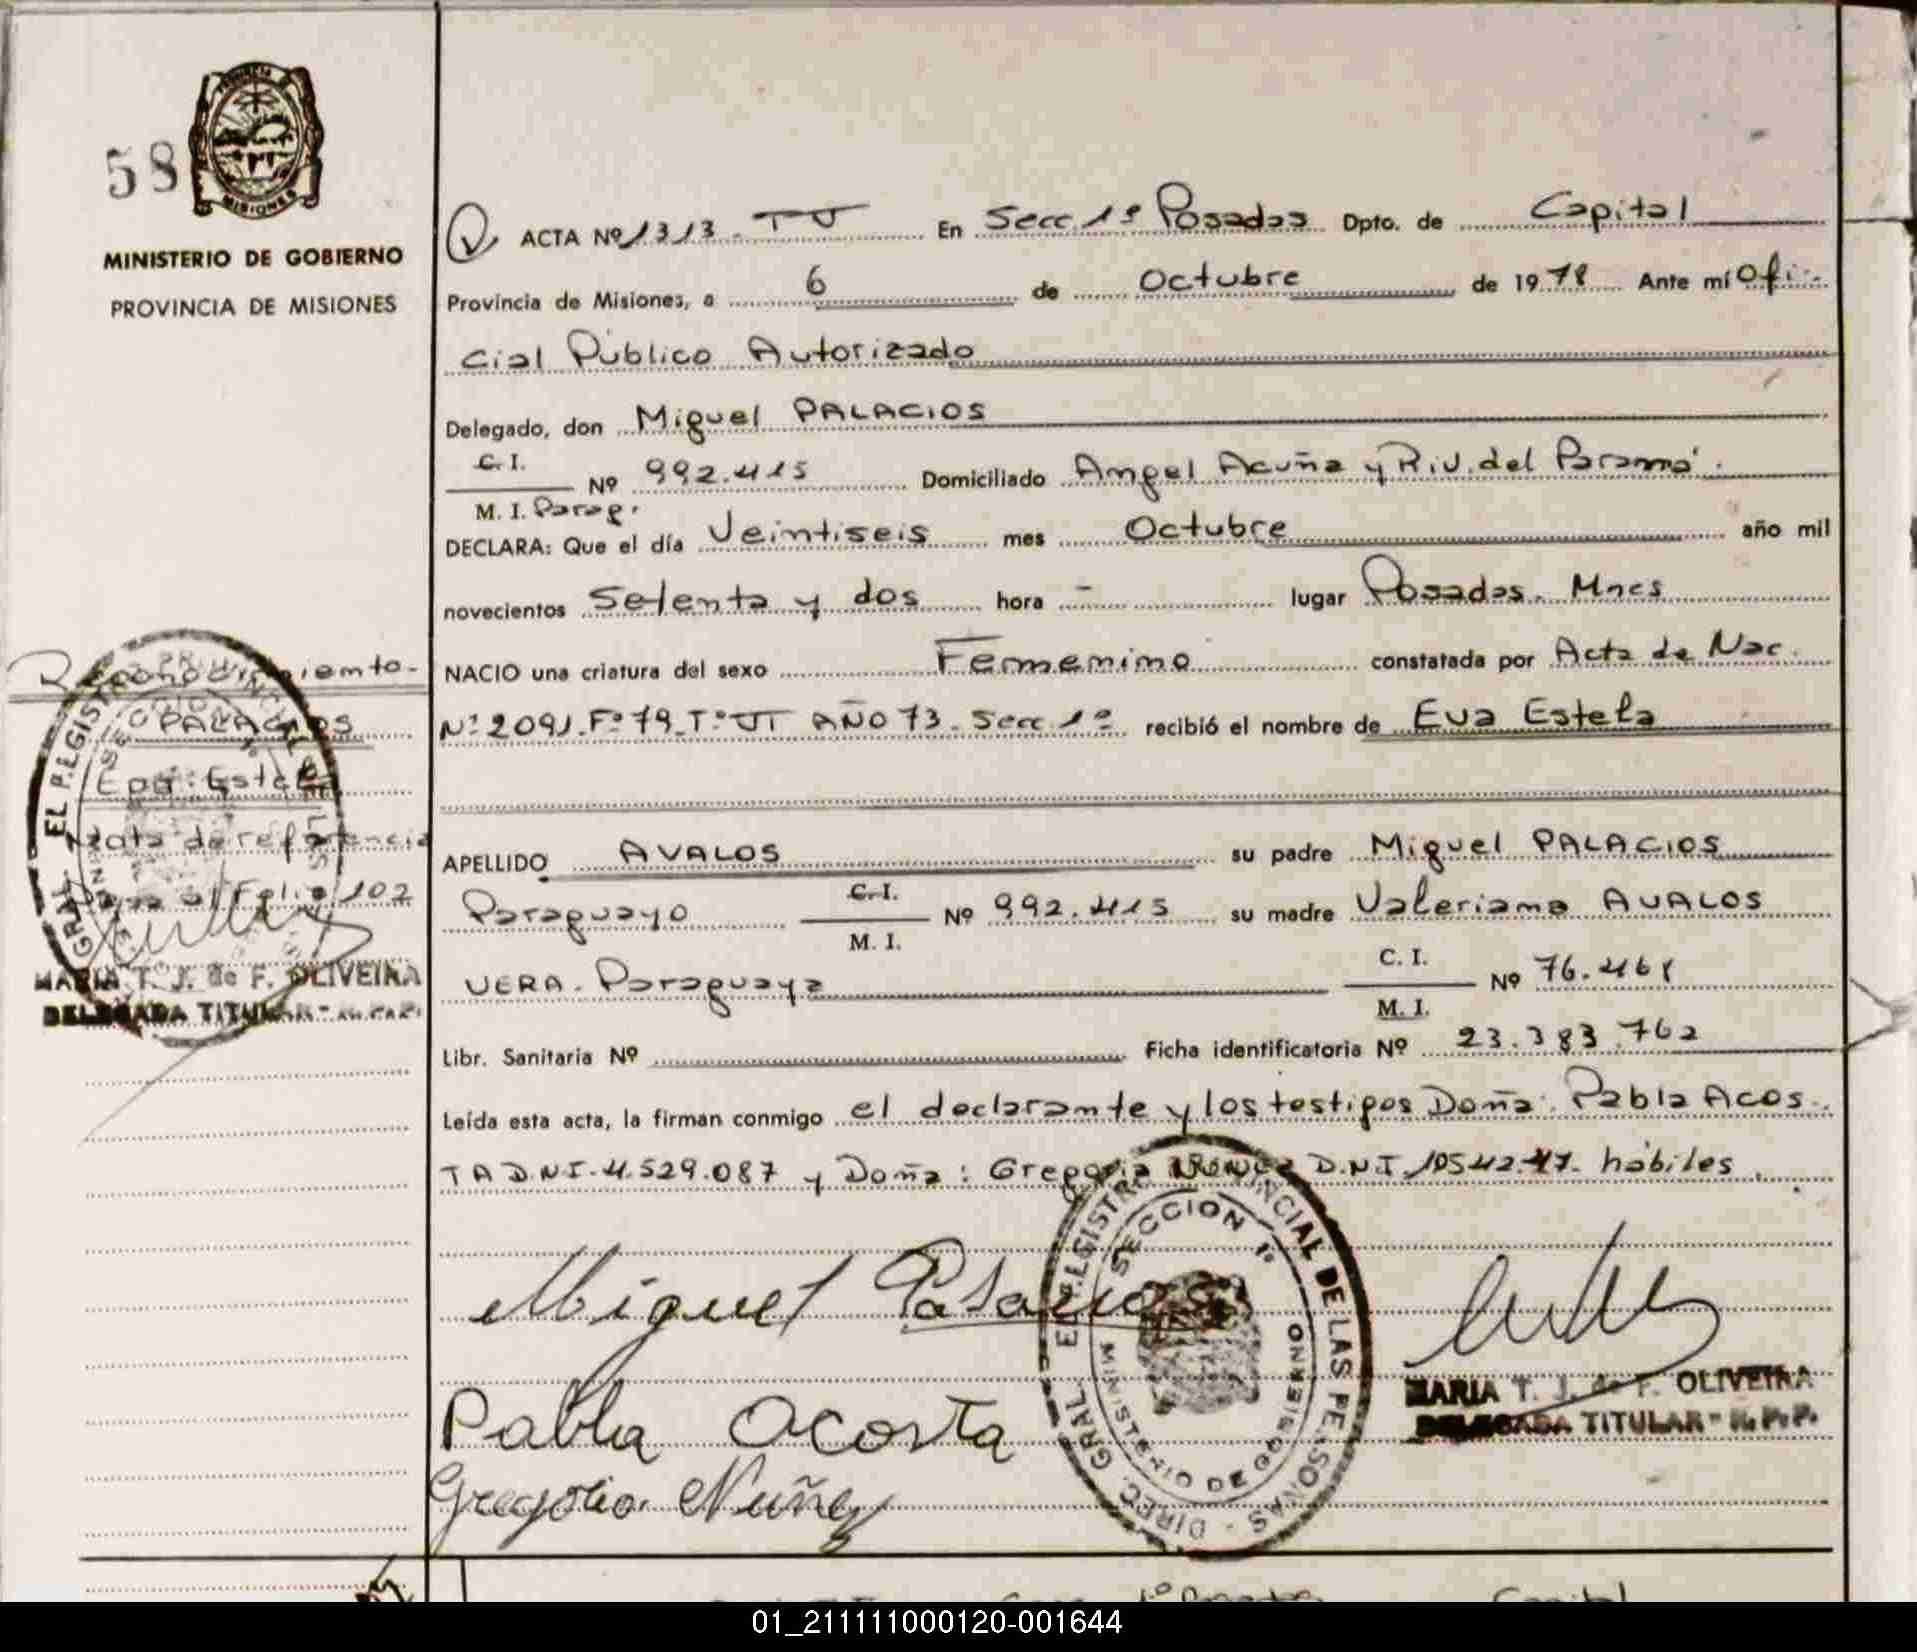 58
PROVINCIA DE
MISIONES
MINISTERIO DE GOBIERNO
PROVINCIA DE MISIONES
ACTA Nº 1313. TU En Secc. 1º Posadas Dpto. de Capital
Provincia de Misiones, a 6 de Octubre de 1978 Ante mí Ofi-
cial Público Autorizado
Delegado, don Miguel PALACIOS
C. I.
M. I. Parag. Nº 992.415 Domiciliado Angel Acuña y Riv. del Paraná.
DECLARA: Que el día Veintiseis mes Octubre año mil
novecientos Setenta y dos hora - lugar Posadas. Mnes
NACIO una criatura del sexo Femenino constatada por Acta de Nac.
Nº 2091. Fº 79. Tº VI AÑO 73. Secc. 1º recibió el nombre de Eva Estela
APELLIDO AVALOS su padre Miguel PALACIOS
Paraguayo C. I. M. I. Nº 992.415 su madre Valeriana AVALOS
VERA. Paraguaya C. I. M. I. Nº 76.468
Libr. Sanitaria Nº Ficha identificatoria Nº 23.383.762
Leída esta acta, la firman conmigo el declarante y los testigos Doña: Pabla Acos-
TA D.N.I. 4.529.087 y Doña: Gregoria D.N.I hábiles.
Miguel Palacios
Pabla Acosta
Gregoria Nuñez
DIREC. GRAL. DEL REGISTRO PROVINCIAL DE LAS PERSONAS
SECCION 1º
MINISTERIO DE GOBIERNO
MARIA T. J. de F. OLIVEIRA
DELEGADA TITULAR - R. P. P.
Reconocimiento-
PALACIOS
Eva Estela
Acta de referencia
al Folio 102
MARIA T. J. de F. OLIVEIRA
DELEGADA TITULAR
01_211111000120-001644